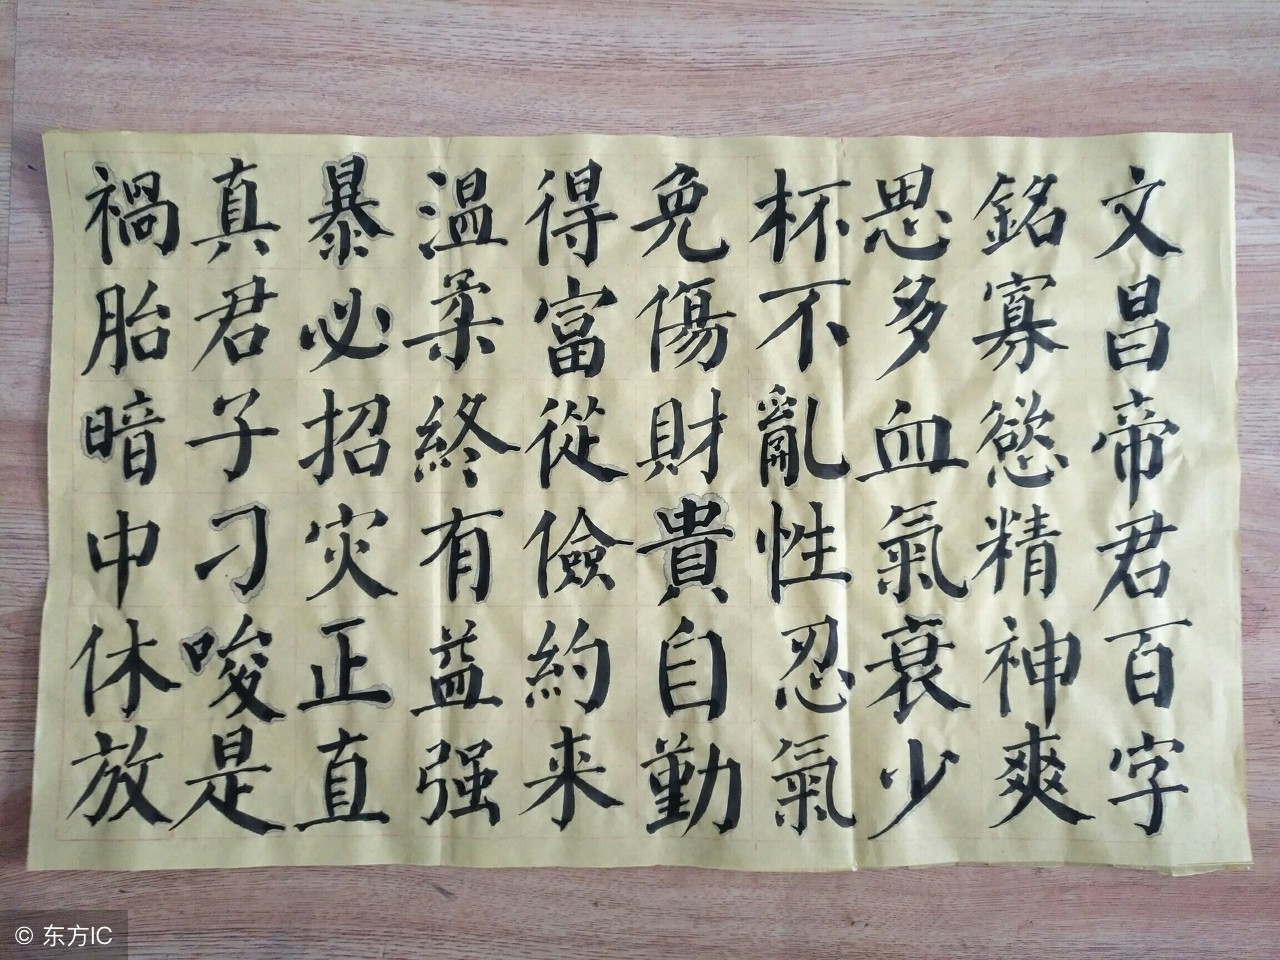 文昌帝君百字
銘寡慾精神爽
思多血氣衰少
杯不亂性忍氣
免傷財貴自勤
得富從儉約来
温柔終有益强
暴必招灾正直
真君子刁唆是
禍胎暗中休放
© 东方IC